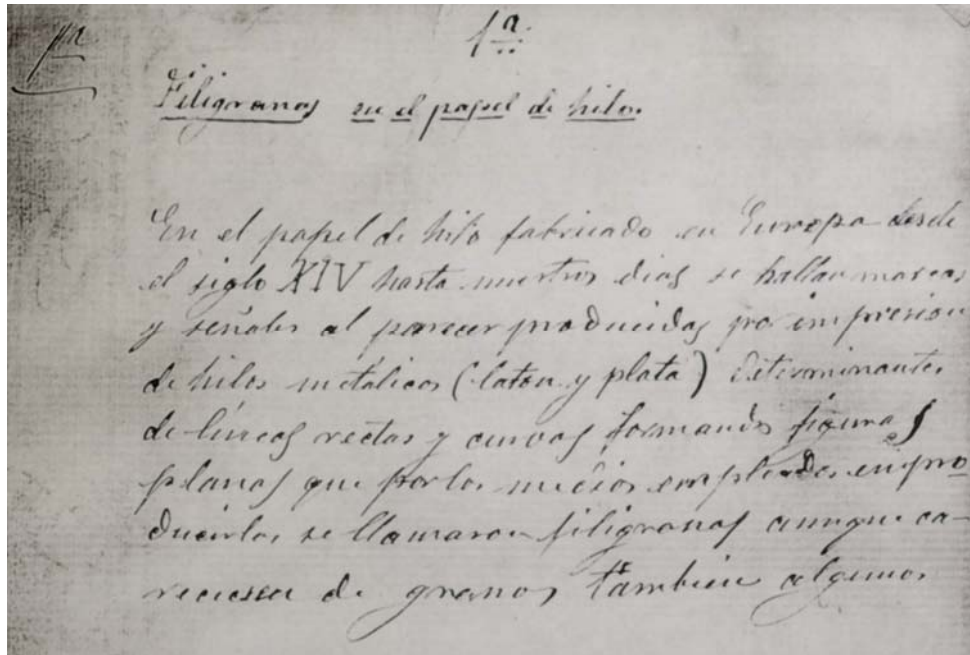 1ª
1ª
Filigranas en el papel de hilo.
En el papel de hilo fabricado en Europa desde
el siglo XIV hasta nuestros dias se hallan marcas
y señales al parecer producidas por impresion
de hilos metálicos (laton y plata) determinantes
de líneas rectas y curvas formando figuras
planas que por los medios empleados en pro-
ducirlas se llamaron filigranas aunque ca-
reciesen de granos tambien algunos